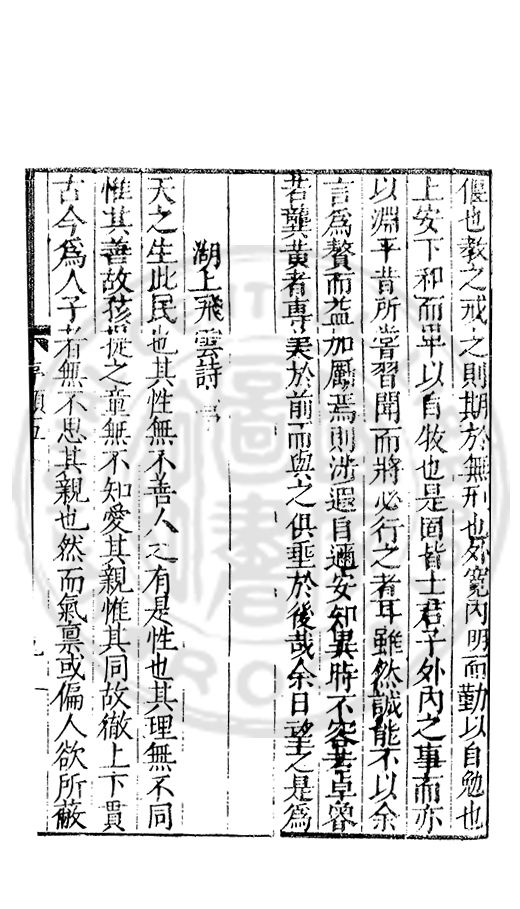 偃也教之戒之則期於無刑也外寛内明而勤以自勉也
上安下和而卑以自牧也是固皆士君子外内之事而亦
以淵平昔所嘗習聞而將必行之者耳雖然誠能不以余
言為贅而益加勵焉則涉遐自邇安知異時不容若卓魯
若龔黄者專美於前而與之俱垂於後哉余日望之是為
湖上飛雲詩
天之生此民也其性無不善人之有是性也其理無不同
惟其善故孩提之童無不知愛其親惟其同故徹上下貫
古今為人子者無不思其親也然而氣禀或偏人欲所蔽